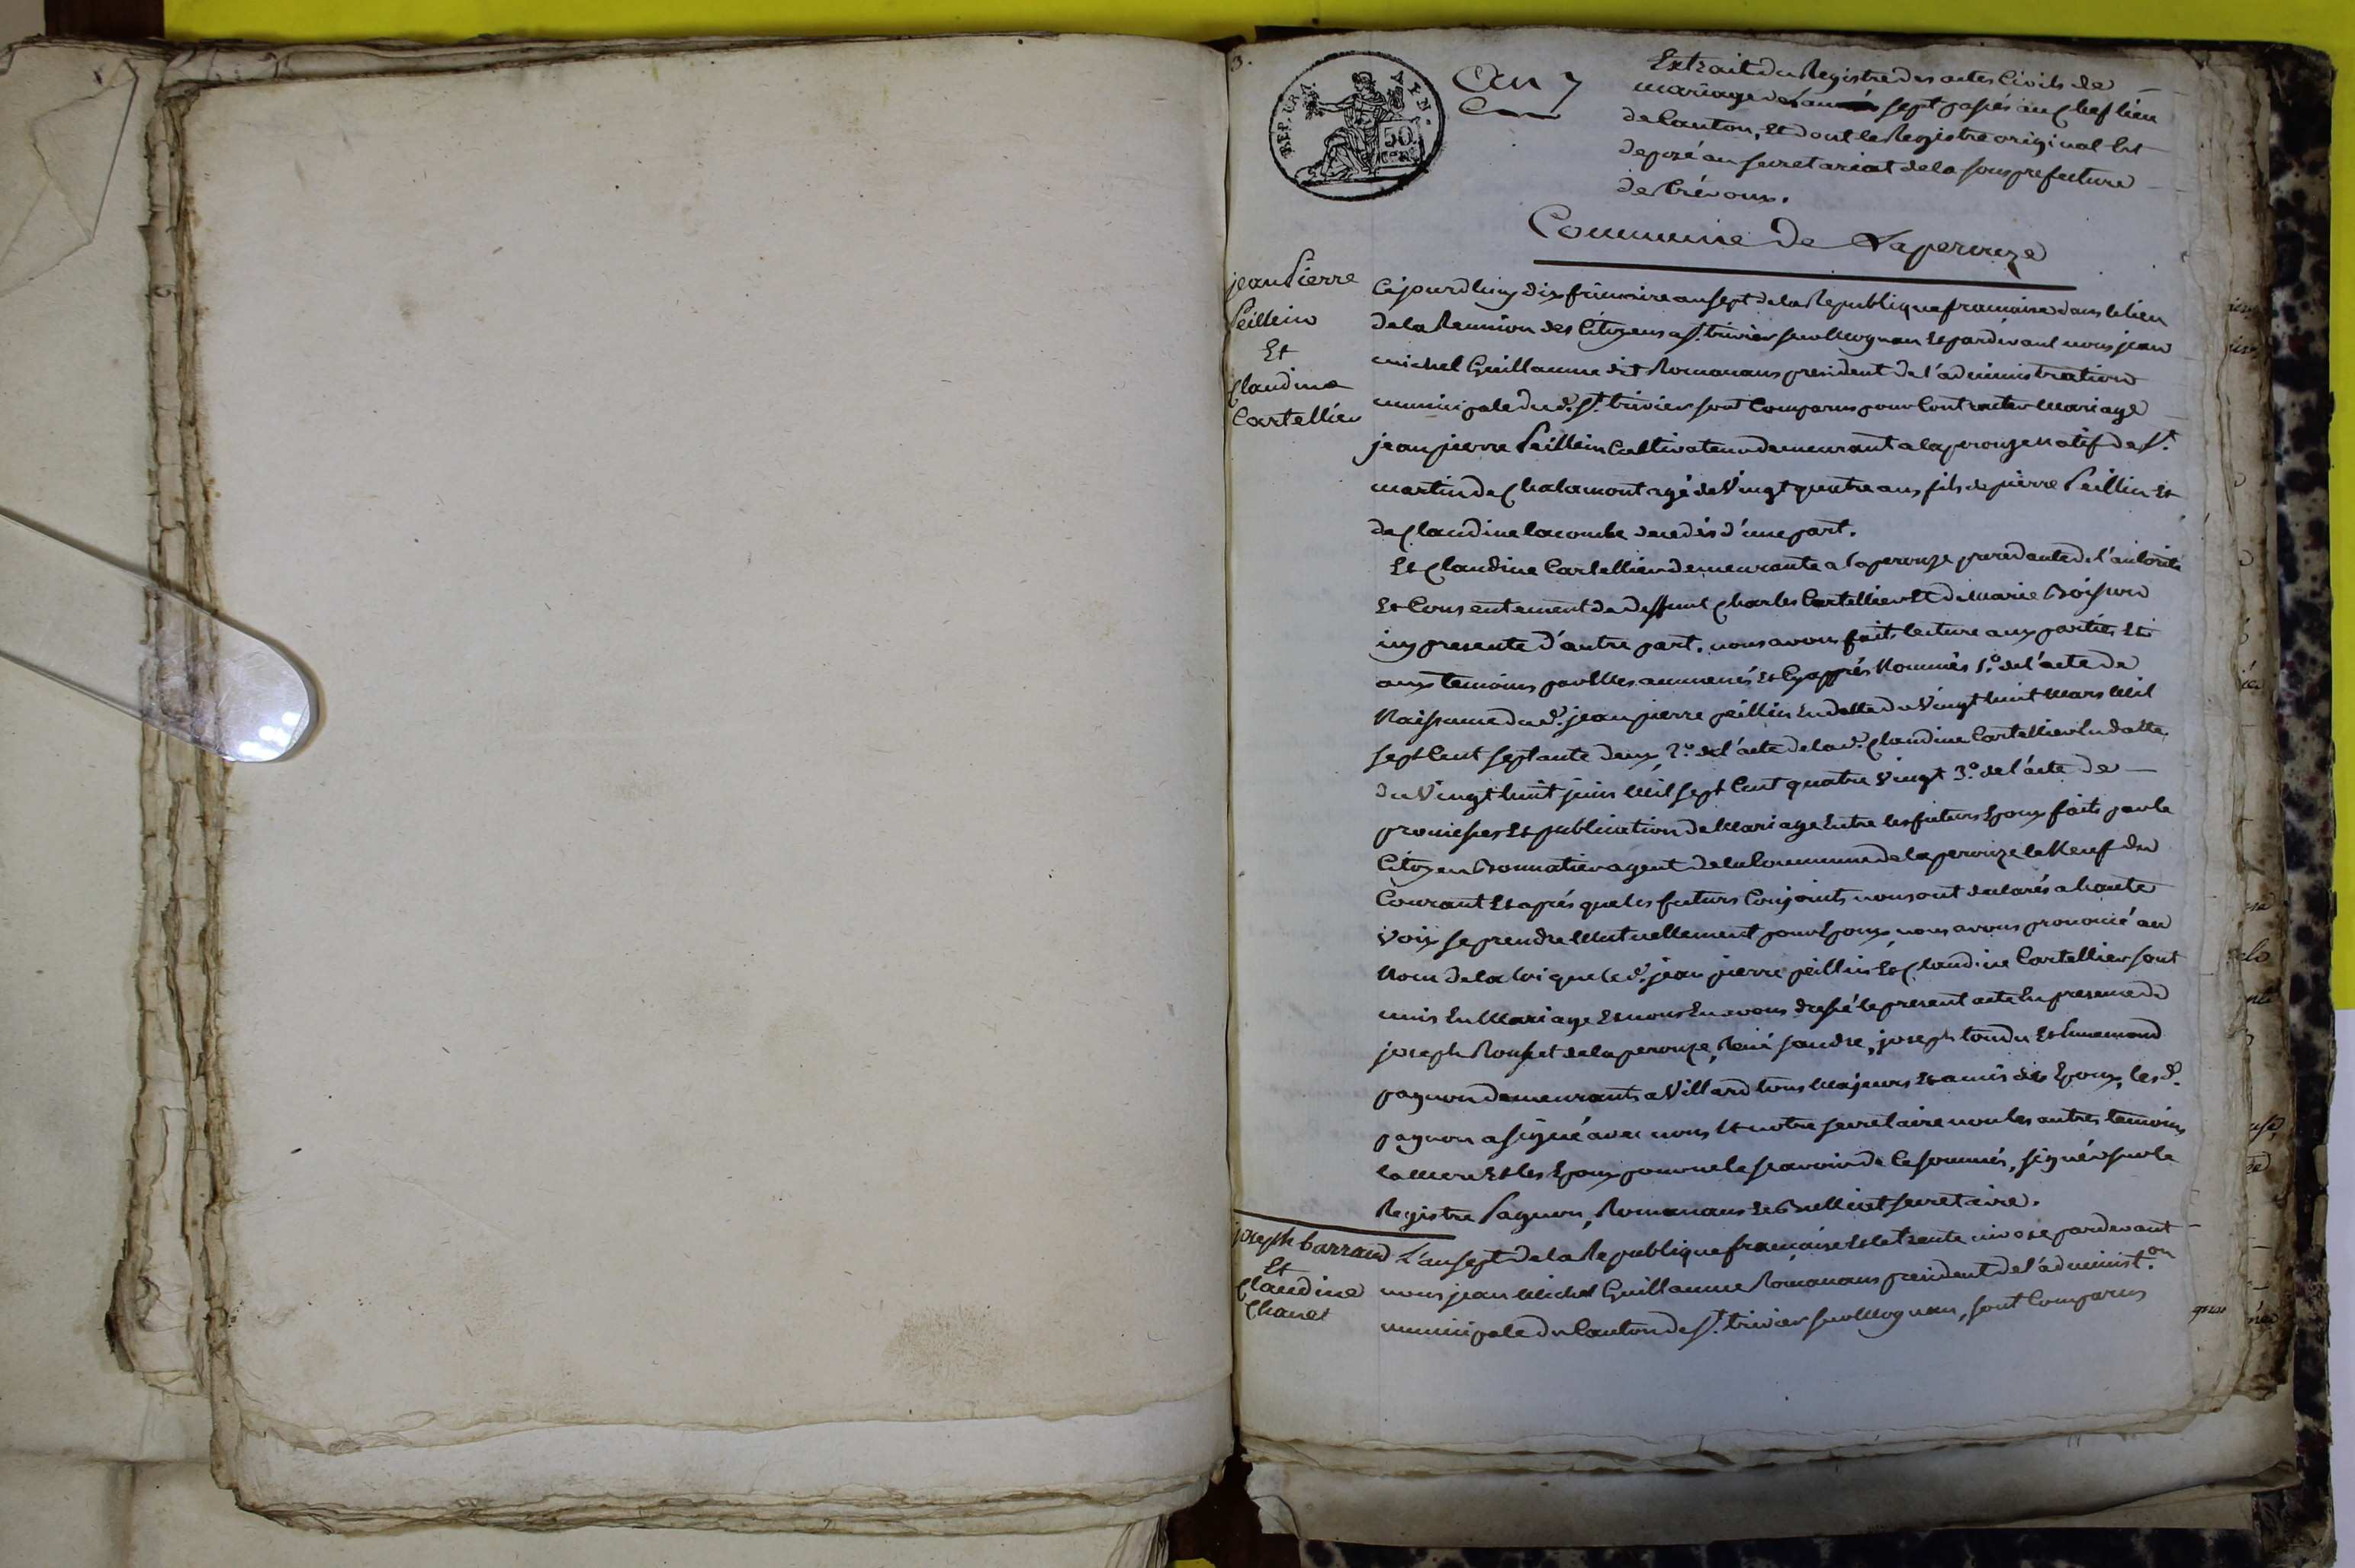 3.
REP. FRA. AYN.
50
CEN.
An 7
Extrait du Registre des actes Civils de
mariage de L'an sept passés au Chef lieu
de Canton, Et dont le Registre original Est
deposé au secretariat de la sous prefecture
de trévoux.
Commune De Laperouze
jean Pierre
Peillein
Et
Claudine
Cartellier
Cejourdhuy dix frimaire an sept de la Republique francaise dans le lieu
de la Reunion des Citoyens a St. trivier sur Moignan Et pardevant nous jean
michel Guillaume dit Romanans president de l'administration
municipale dud. St. trivier sont Comparus pour Contracter Mariage
jean pierre Peillein Cultivateur demeurant a laperouze natif de St.
martin de Chalamont agé de Vingt quatre ans fils de pierre Peillin Et
de Claudine lacombe decedés d'une part.
Et Claudine Cartellier demeurante a laperouze procedante de l'autorité
Et Consentement de deffunt Charles Cartellier Et de Marie
icy presente d'autre part. nous avons fait lecture aux parties Et
aux temoins par Elles ammenés Et Cy après Nommés 1.° de l'acte de
Naissance dud. jean pierre peillin En datte du Vingt huit Mars Mil
sept Cent septante deux, 2.° de l'acte de lad. Claudine Cartellier En datte
du Vingt huit juin Mil sept Cent quatre Vingt 3.° de l'acte de
promesses Et publication de Mariage Entre les futurs Epoux faits par le
Citoyen Bonnatier agent de la Commune de laperouze le Neuf du
Courant Et après que les futurs Conjoints nous ont declarés a haute
voix se prendre Mutuellement pour Epoux, nous avons prononcé au
Nom de la loi que led. jean pierre peillin Et Claudine Cartellier sont
unis En Mariage Et nous En avons dressé le present acte En presence de
joseph Rousset de laperouze, René joseph tondu Et Ennemond
pagnon demeurants a Villard tous Majeurs Et amis des Epoux, les d.
pagnon a signé avec nous Et notre secretaire non les autres temoins
la Mere Et les Epoux pour ne le sçavoir de Ce sommés, signé sur le
Registre Pagnon, Romanans Et secretaire.
joseph barraud
Et
Claudine
Chanel
L'an sept de la Republique française Et le trente nivose pardevant
nous jean Michel Guillaume Romanans president de l'administ.on
municipale du Canton de St. trivier sur Moignan, sont Comparus
pour